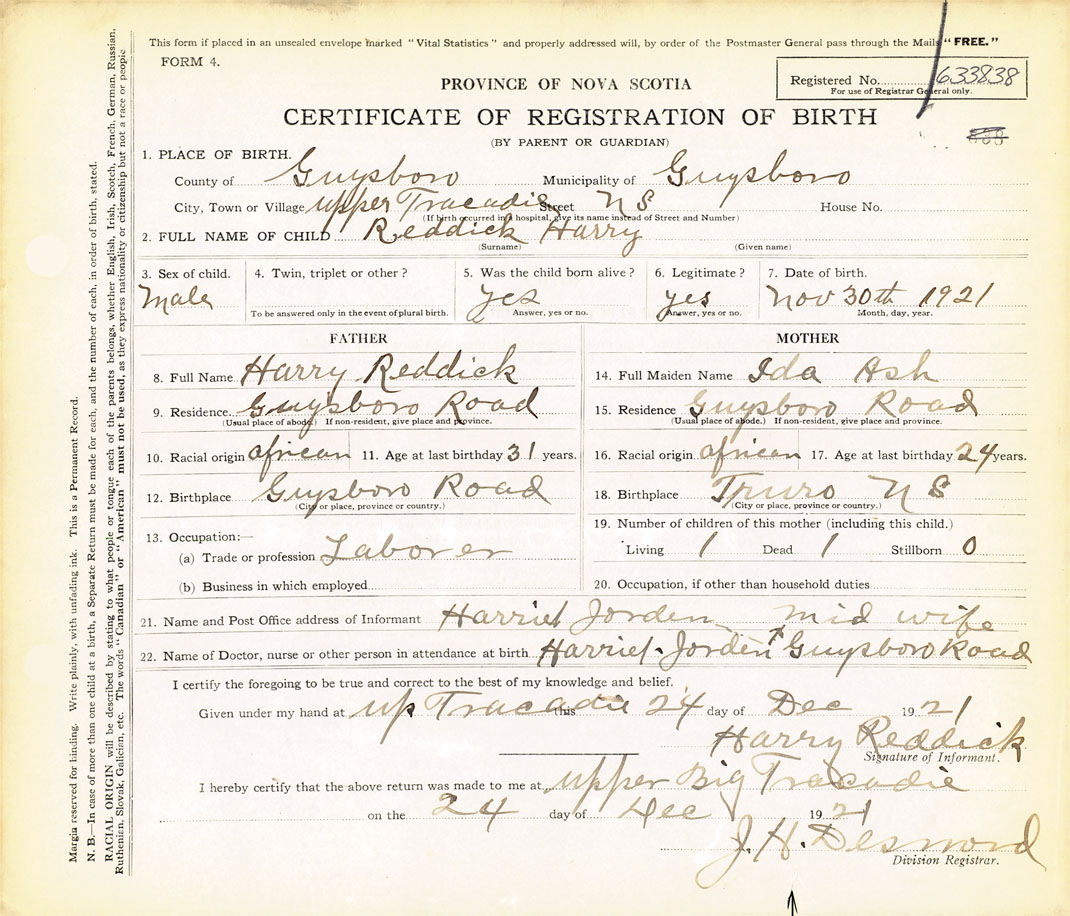 This form if placed in an unsealed envelope marked "Vital Statistics" and properly addressed will, by order of the Postmaster General pass through the Mails "FREE."
FORM 4.
Registered No. 633838
For use of Registrar General only.
PROVINCE OF NOVA SCOTIA
CERTIFICATE OF REGISTRATION OF BIRTH
(BY PARENT OR GUARDIAN)
1. PLACE OF BIRTH.
County of Guysboro Municipality of Guysboro
City, Town or Village upper Tracadie Street N S House No.
(If birth occurred in a hospital, give its name instead of Street and Number)
2. FULL NAME OF CHILD Reddick Harry
(Surname) (Given name)
3. Sex of child. 4. Twin, triplet or other? 5. Was the child born alive? 6. Legitimate? 7. Date of birth.
Male yes yes Nov 30th 1921
To be answered only in the event of plural birth. Answer, yes or no. Answer, yes or no. Month, day, year.
FATHER MOTHER
8. Full Name Harry Reddick 14. Full Maiden Name Ida Ash
9. Residence Guysboro Road 15. Residence Guysboro Road
(Usual place of abode.) If non-resident, give place and province. (Usual place of abode.) If non-resident, give place and province.
10. Racial origin african 11. Age at last birthday 31 years. 16. Racial origin african 17. Age at last birthday 24 years.
12. Birthplace Guysboro Road 18. Birthplace Truro N S
(City or place, province or country.) (City or place, province or country.)
13. Occupation:— 19. Number of children of this mother (including this child.)
(a) Trade or profession Laborer Living 1 Dead 1 Stillborn 0
(b) Business in which employed 20. Occupation, if other than household duties
21. Name and Post Office address of Informant Harriet Jorden mid wife
22. Name of Doctor, nurse or other person in attendance at birth Harriet Jorden Guysboro Road
I certify the foregoing to be true and correct to the best of my knowledge and belief.
Given under my hand at up Tracadie this 24 day of Dec 1921
Harry Reddick
Signature of Informant.
I hereby certify that the above return was made to me at upper Big Tracadie
on the 24 day of Dec 1921
J. H. Desmond
Division Registrar.
Margin reserved for binding. Write plainly, with unfading ink. This is a Permanent Record.
N. B.—In case of more than one child at a birth, a Separate Return must be made for each, and the number of each, in order of birth, stated.
RACIAL ORIGIN will be described by stating to what people or tongue each of the parents belongs, whether English, Irish, Scotch, French, German, Russian,
Ruthenian, Slovak, Galician, etc. The words "Canadian" or "American" must not be used, as they express nationality or citizenship but not a race or people